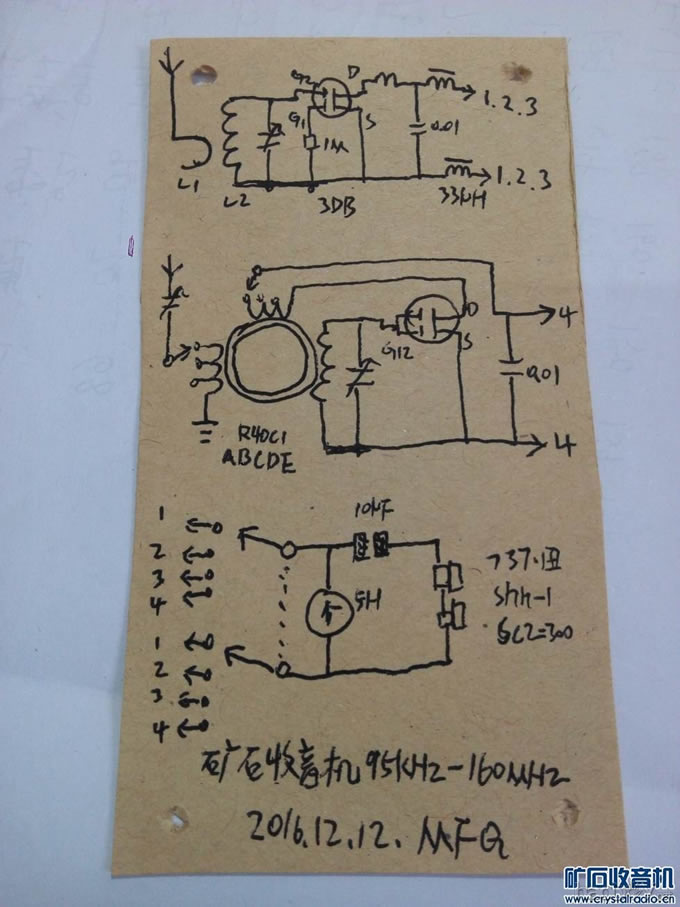 G2 D
G1 S
1M
0.01
1.2.3
L1 L2 3DB 33UH 1.2.3
D
S
G12
4
0.01
4
R40C1
ABCDE
1
2
3
4
1
2
3
4
10UF
SHR-1
矿石收音机 95KHZ-160MHZ
2016.12.12. MFQ
矿石收音机
www.crystalradio.cn